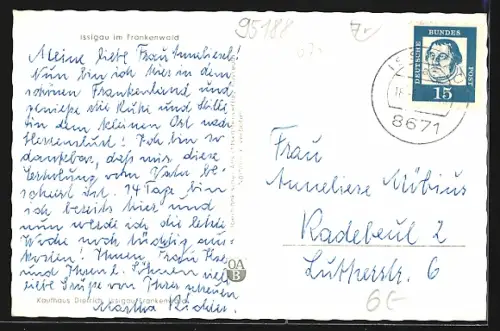 Issigau im Frankenwald
95188
7,-
Meine liebe Frau Anneliese!
Nun bin ich hier in dem
schönen Frankenland und
genieße die Ruhe und Stille
in dem kleinen Ort nach
Herzenslust! Ich bin so
dankbar, daß mir diese
Erholung vom Vater be-
schert ist. 14 Tage bin
ich bereits hier und
nun werde ich die letzte
Woche noch tüchtig aus-
kosten! Ihnen, Frau
und Ihren l. Söhnen viele
liebe Grüße von Ihrer treuen
Martha
Kaufhaus Dietrich Issigau/Frankenwald
DEUTSCHE BUNDESPOST
15
8671
Frau
Anneliese Möbius
Radebeul 2
Lutherstr. 6
6€